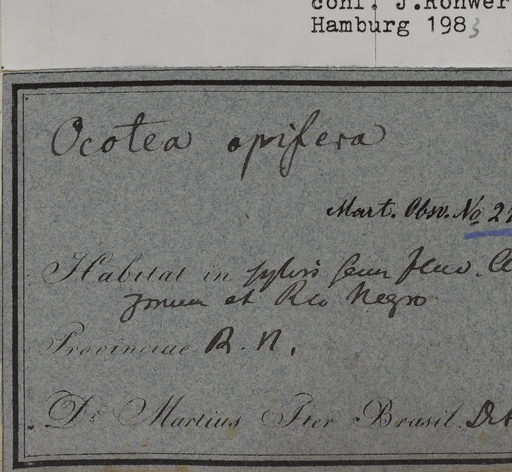 conf. J.Rohwer
Hamburg 1983
Ocotea opifera
Mart. Obsv. No 2
Habitat in sylvis fluv.
et Rio Negro
Provinciae R. N.
Dr. Martius Iter Brasil.